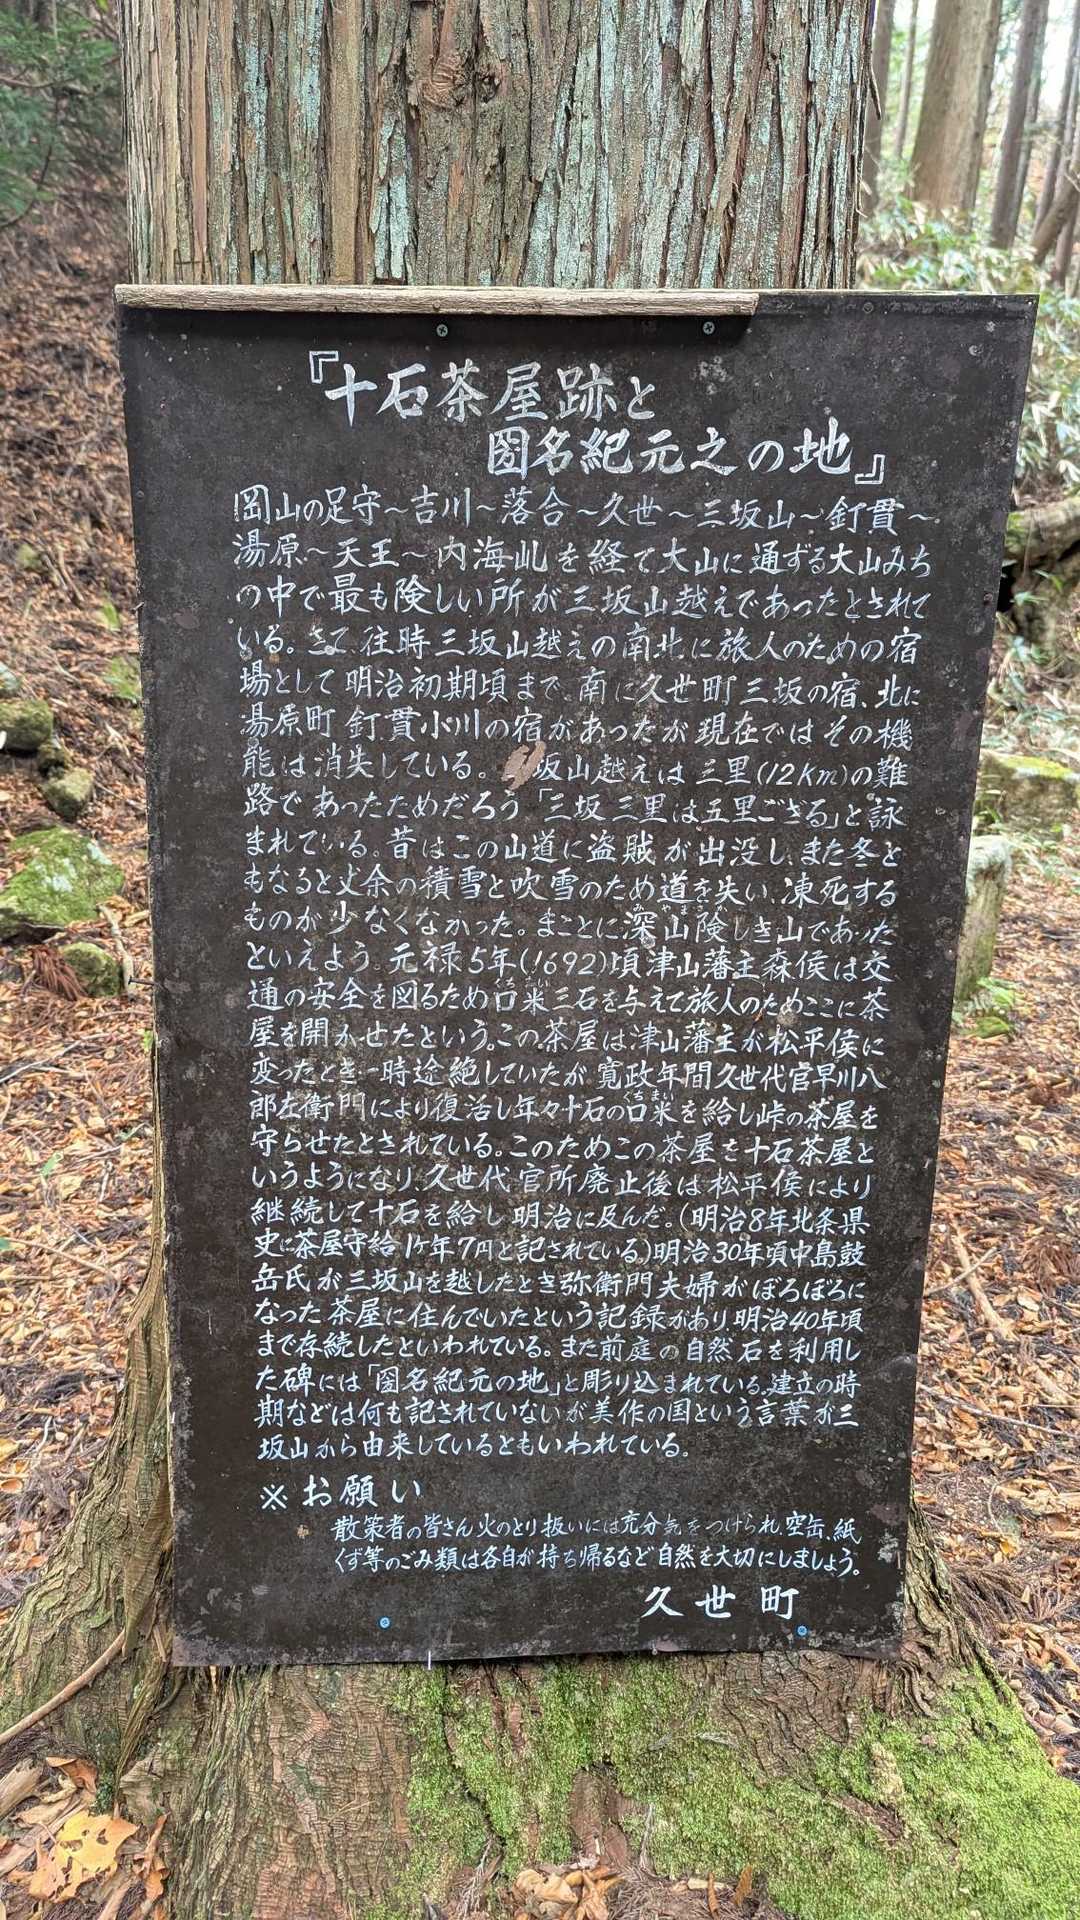 『十石茶屋跡と
圀名紀元之の地』
岡山の足守～吉川～落合～久世～三坂山～釘貫～
湯原～天王～内海乢を経て大山に通ずる大山みち
の中で最も険しい所が三坂山越えであったとされて
いる。さて、往時三坂山越えの南北に旅人のための宿
場として明治初期頃まで、南に久世町三坂の宿、北に
湯原町釘貫小川の宿があったが現在ではその機
能は消失している。坂山越えは三里(12Km)の難
路であったためだろう「三坂三里は五里ござる」と詠
まれている。昔はこの山道に盗賊が出没し、また冬と
もなると丈余の積雪と吹雪のため道を失い、凍死する
ものが少なくなかった。まことに深山険しき山であった
といえよう。元禄5年(1692)頃津山藩主森侯は交
通の安全を図るため口米三石を与えて旅人のためここに茶
屋を開かせたという。この茶屋は津山藩主が松平侯に
変ったとき一時途絶していたが寛政年間久世代官早川八
郎左衛門により復活し年々十石の口米を給し峠の茶屋を
守らせたとされている。このためこの茶屋を十石茶屋と
いうようになり、久世代官所廃止後は松平侯により
継続して十石を給し明治に及んだ。(明治8年北条県
史に茶屋守給1ケ年7円と記されている)明治30年頃中島鼓
岳氏が三坂山を越したとき弥衛門夫婦がぼろぼろに
なった茶屋に住んでいたという記録があり明治40年頃
まで存続したといわれている。また前庭の自然石を利用し
た碑には「圀名紀元の地」と彫り込まれている。建立の時
期などは何も記されていないが美作の国という言葉が三
坂山から由来しているともいわれている。
※お願い
散策者の皆さん火のとり扱いには充分気をつけられ、空缶、紙
くず等のごみ類は各自が持ち帰るなど自然を大切にしましょう。
久世町